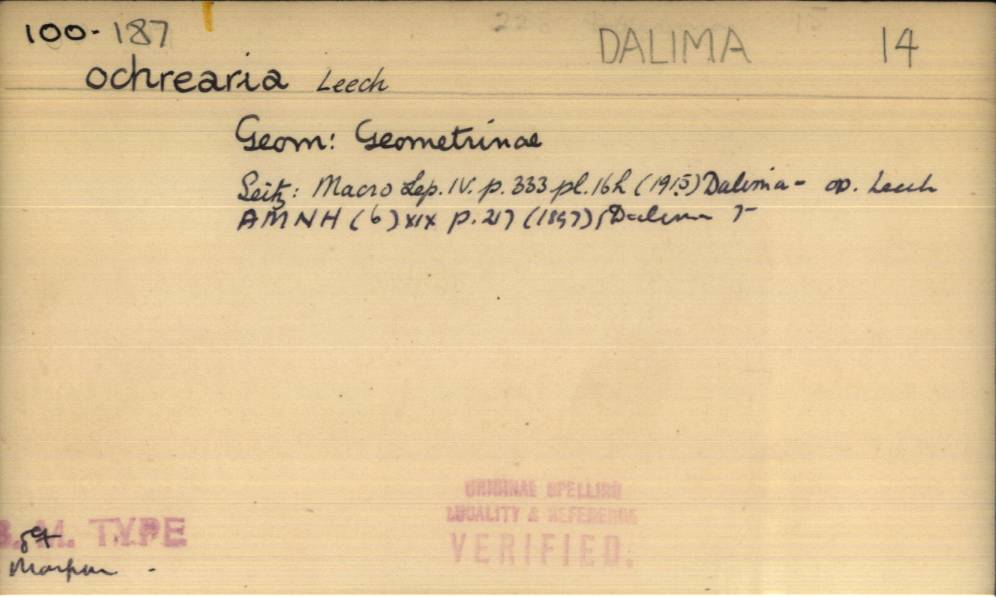 100-187 DALIMA 14
ochrearia Leech
Geom: Geometrinae
Seitz: Macro Lep. IV. p. 333 pl. 16h (1915) Dalima - op. Leech
AMNH (6) xix p. 217 (1897) Dalima
ORIGINAL SPELLING
LOCALITY & REFERENCE
VERIFIED.
B. M. TYPE